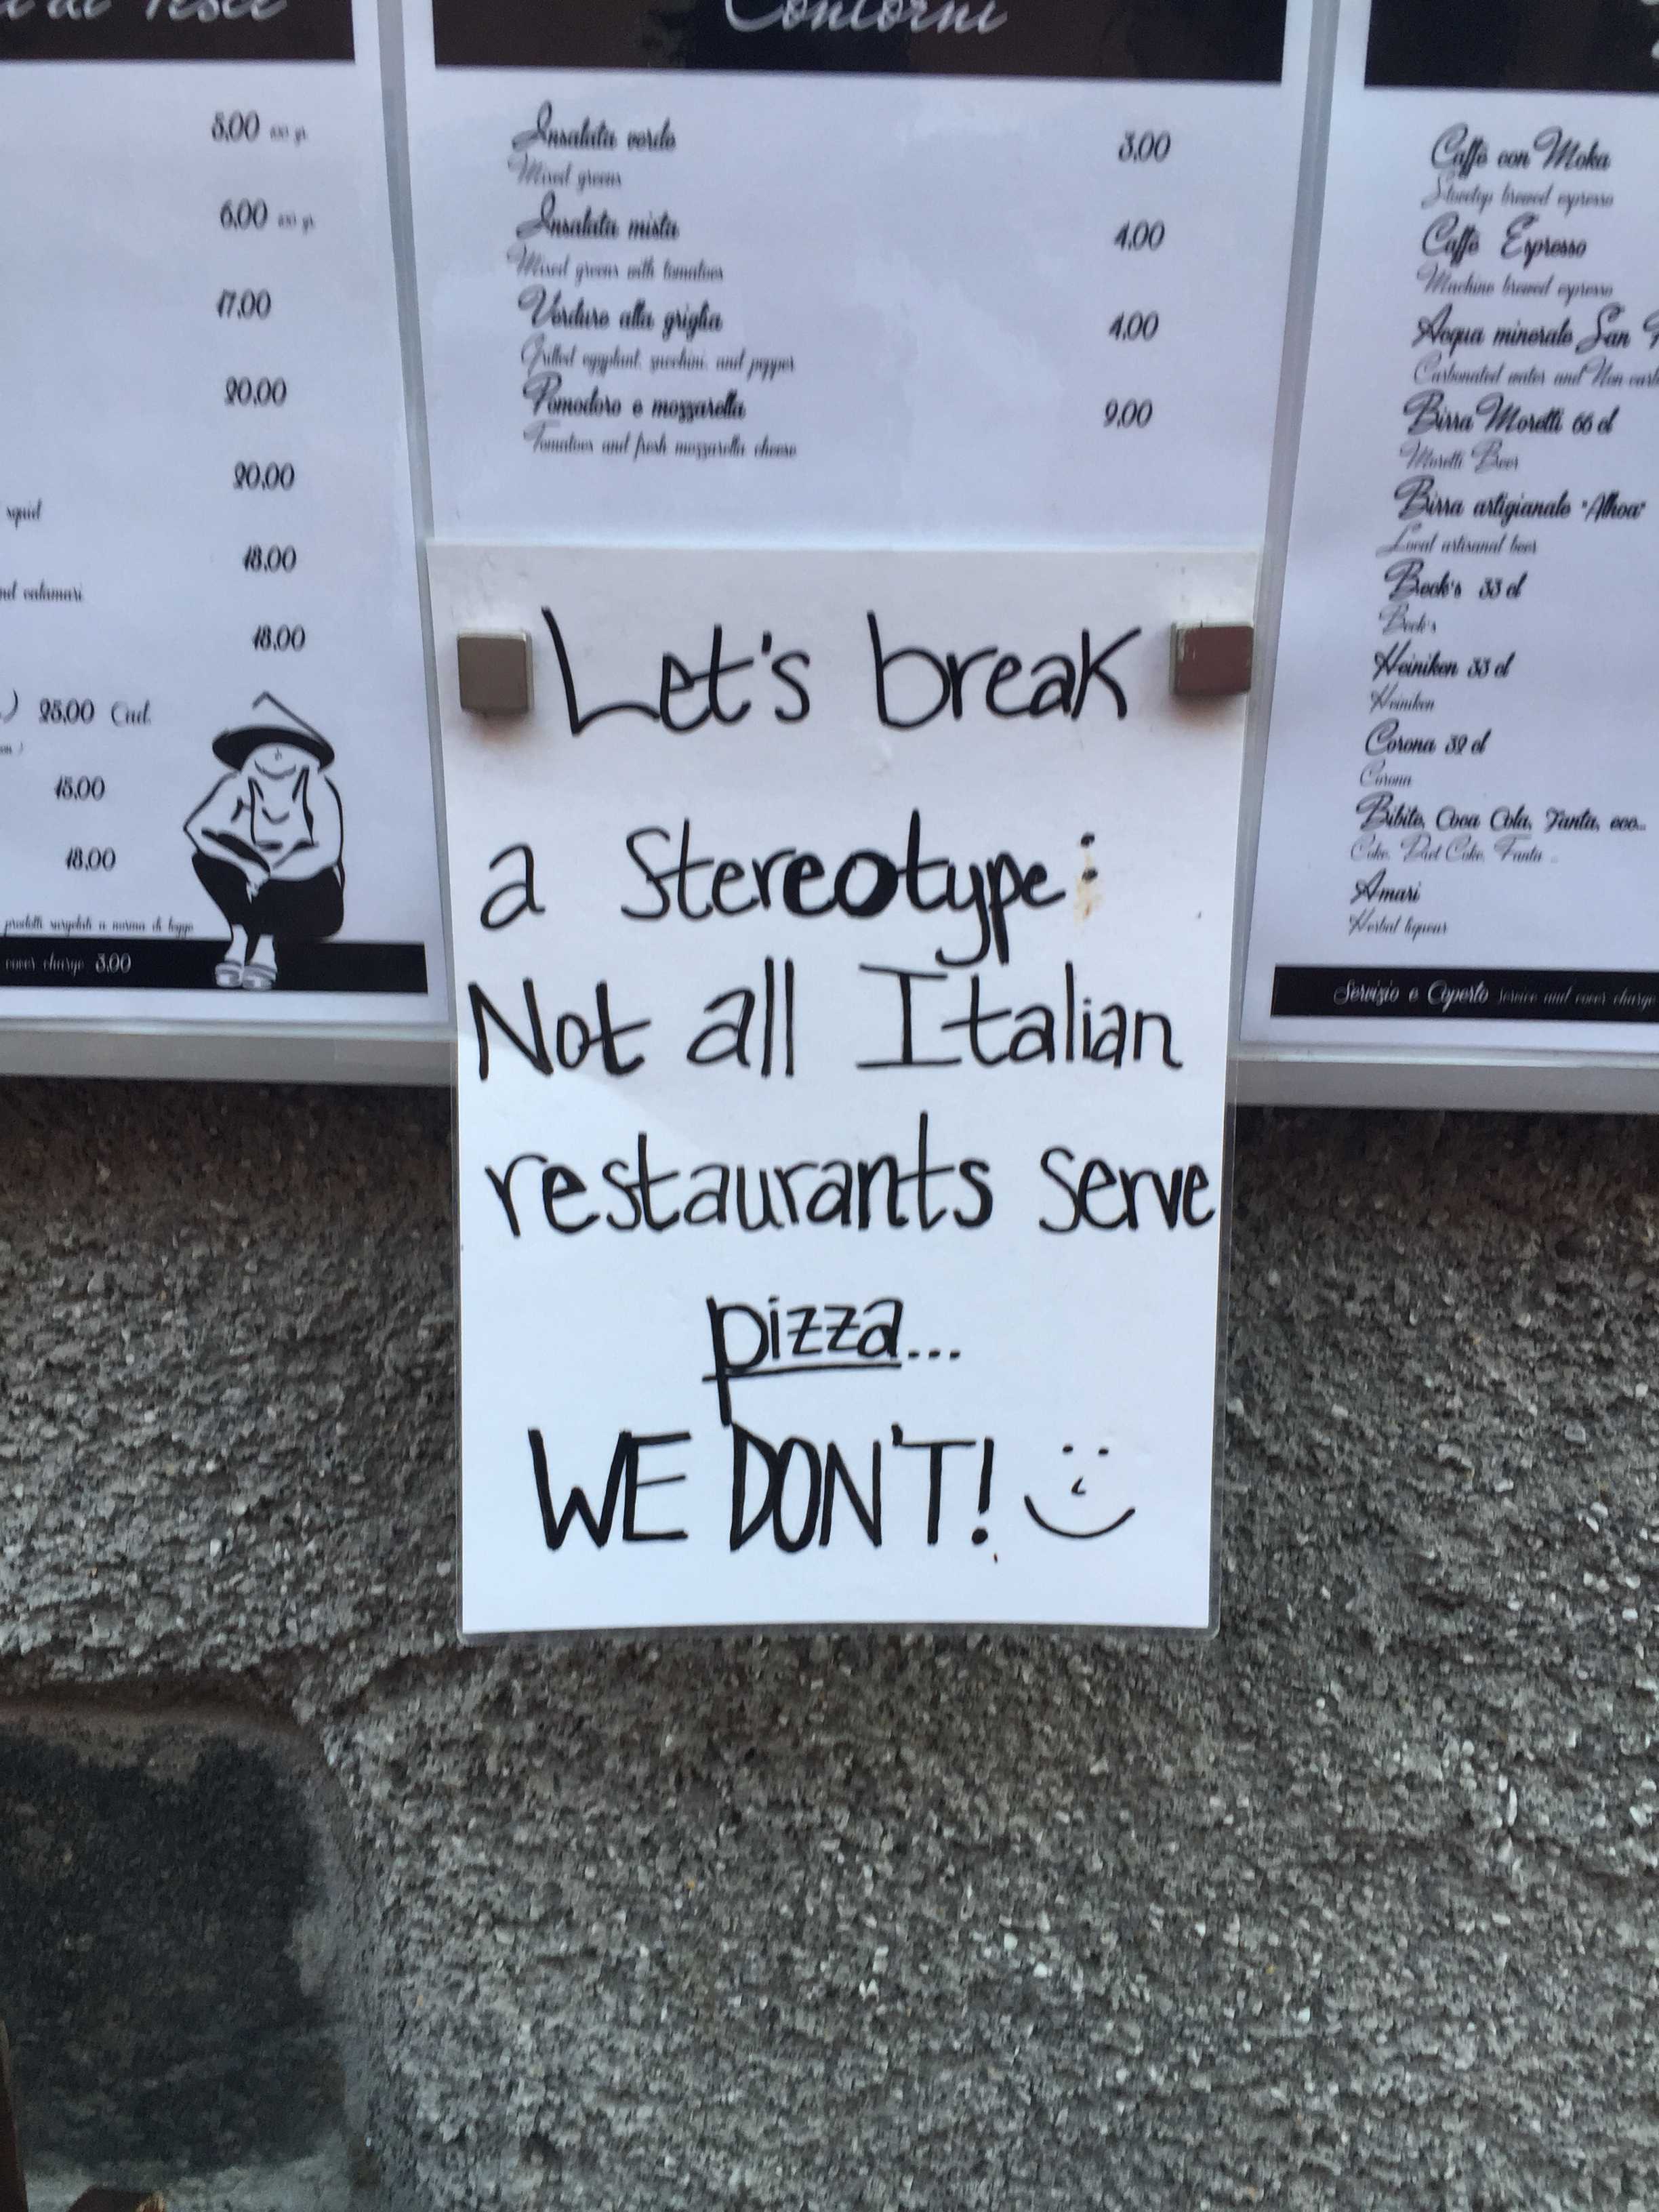 Contorni
5.00
6.00
17.00
20.00
20.00
squid
18.00
calamari
18.00
25.00 Cad.
15.00
18.00
prodotti surgelati a norma di legge
cover charge 3.00
Insalata verde 3.00
Mixed greens
Insalata mista 4.00
Mixed greens with tomatoes
Verdure alla griglia 4.00
Grilled eggplant, zucchini, and pepper
Pomodoro e mozzarella 9.00
Tomatoes and fresh mozzarella cheese
Let's break
a stereotype:
Not all Italian
restaurants serve
pizza...
WE DON'T!
Caffè con Moka
Stovetop brewed espresso
Caffè Espresso
Machine brewed espresso
Acqua minerale San
Carbonated water and Non
Birra Moretti 66 cl
Moretti Beer
Birra artigianale "Alhoa"
Local artisanal beer
Beck's 33 cl
Beck's
Heiniken 33 cl
Heiniken
Corona 32 cl
Corona
Bibite, Coca Cola, Fanta, ecc..
Coke, Diet Coke, Fanta ..
Amari
Herbal liqueur
Servizio e Coperto service and cover charge